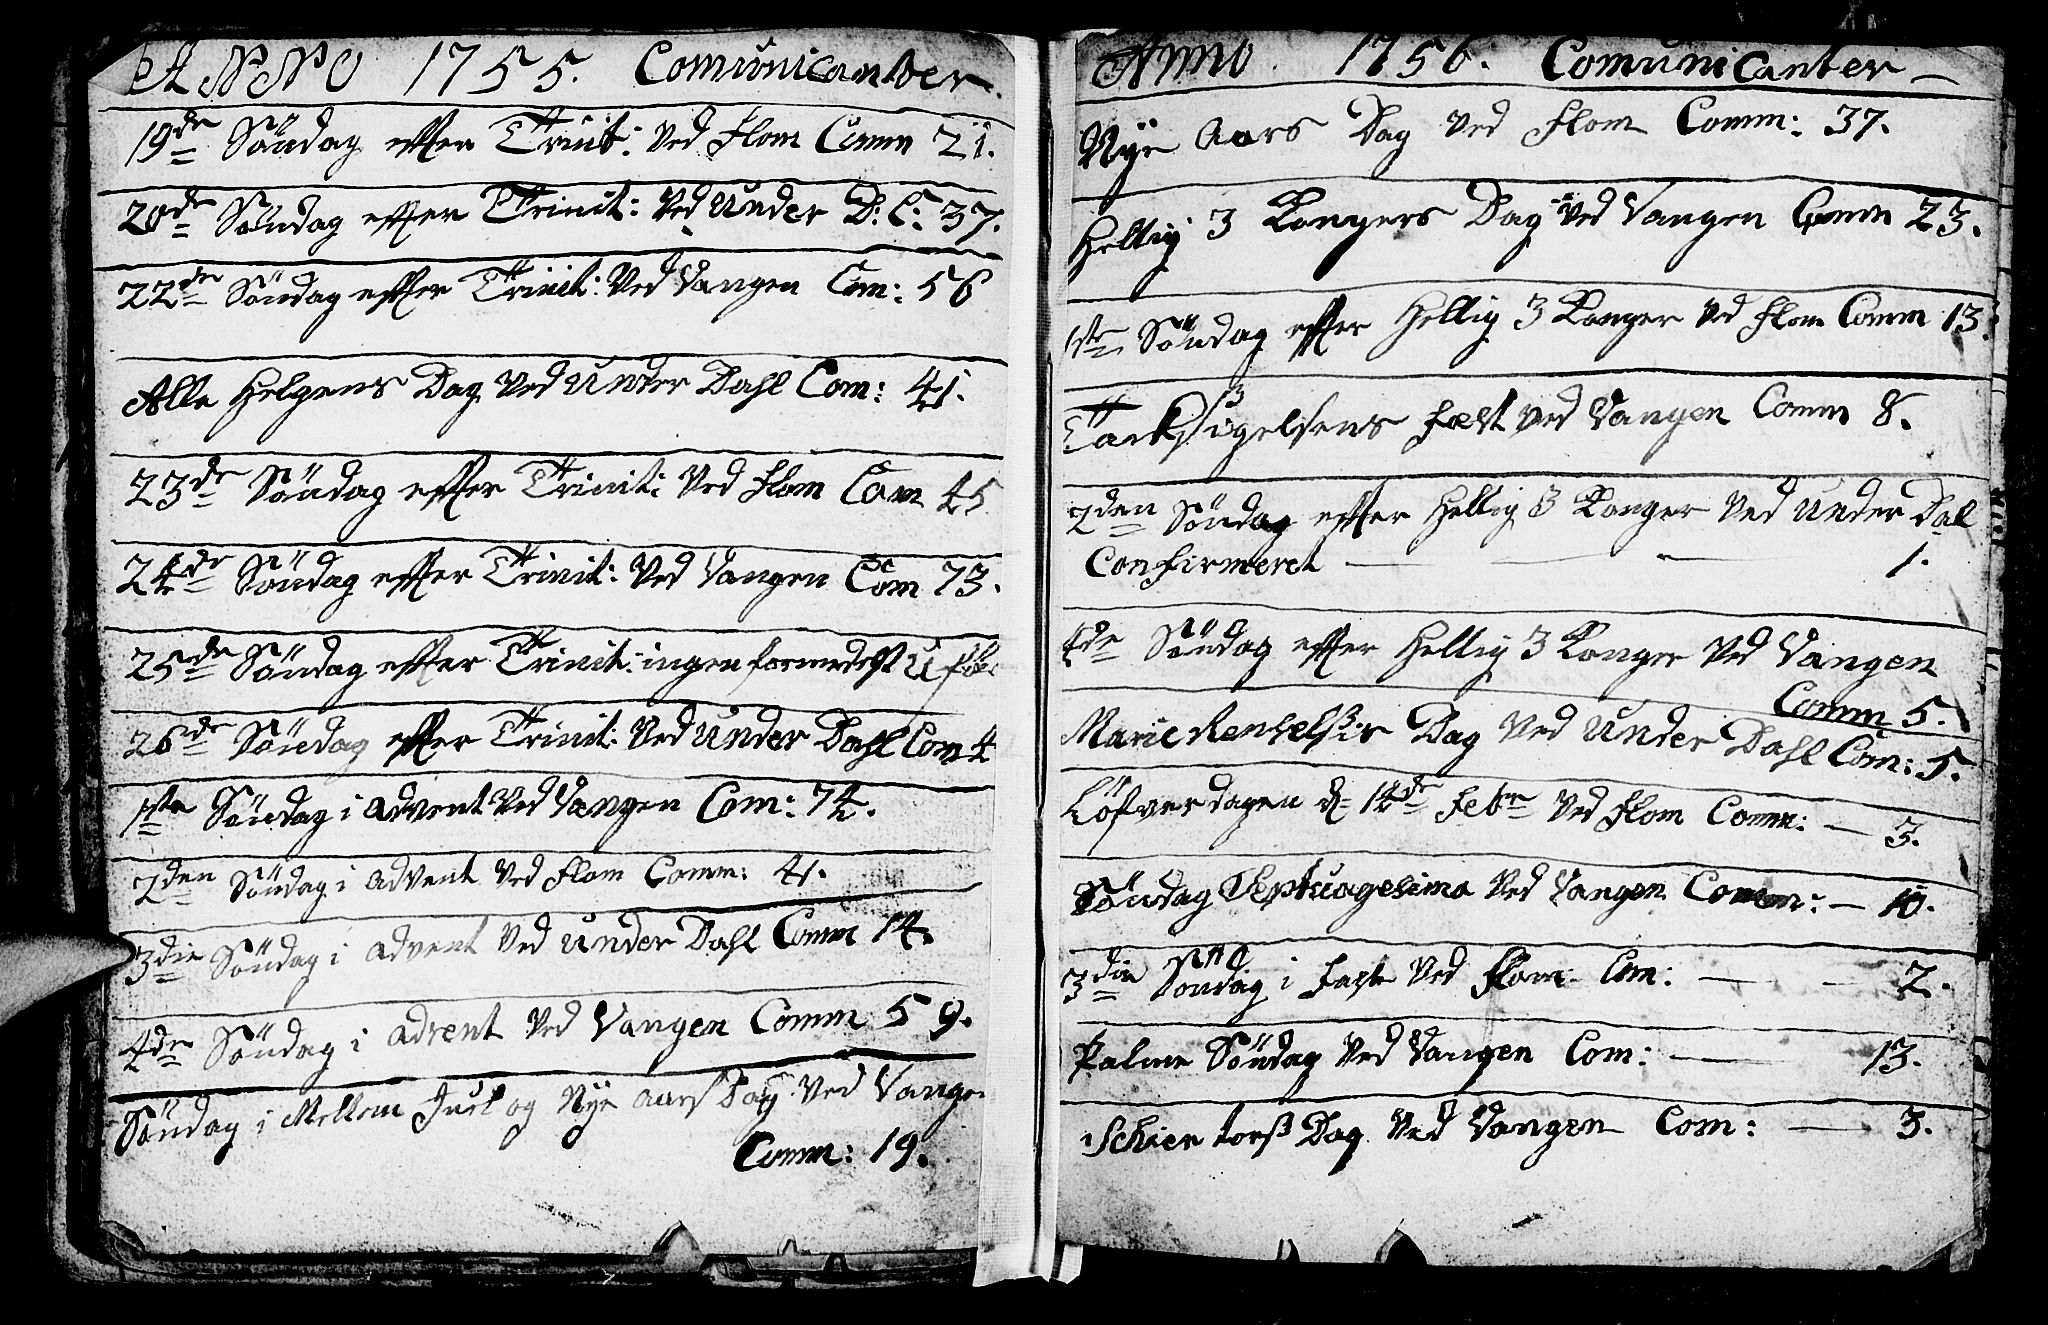 ANNO 1755. Comunicanter.
19de Söndag effter Trinit: Ved Flom Comm 21.
20de Söndag effter Trinit: Ved Under D: C: 37.
22de Söndag effter Trinit: Ved Vangen Com: 56
Alle Helgens Dag Ved Under Dahl Com: 41.
23de Söndag effter Trinit: Ved Flom Com 45
24de Söndag effter Trinit: Ved Vangen Com 73.
25de Söndag effter Trinit: ingen formedelst
26de Söndag effter Trinit: Ved Under Dahl Com 4
1ste Söndag i Advent Ved Vangen Com: 74.
2den Söndag i Advent Ved Flom Comm: 41.
3die Söndag i Advent Ved Under Dahl Comm 14.
4de Söndag i Advent Ved Vangen Comm 59.
Söndag i Mellem Juel og Nye aars Dag Ved Vange
Comm: 19.
Anno 1756. Comunicanter
Nye Aars Dag Ved Flom Comm: 37.
Hellig 3 Kongers Dag Ved Vangen Comm 23.
1ste Söndag effter Hellig 3 Konger Ved Flom Comm 13.
Tacksigelsens Fæst Ved Vangen Comm 8.
2den Söndag effter Hellig 3 Konger Ved Under Dal
Confirmeret 1.
4de Söndag effter Hellig 3 Konger Ved Vangen
Comm 5.
Marie Renselsis Dag Ved Under Dahl Com: 5.
Löfverdagen d 14de Febr Ved Flom Comm: 3.
Söndag Septuagesima Ved Vangen Comm: 10.
3die Söndag i Faste Ved Flom Com: 2.
Palme Söndag Ved Vangen Com: 13.
Schier torsß Dag Ved Vangen Com: 3.